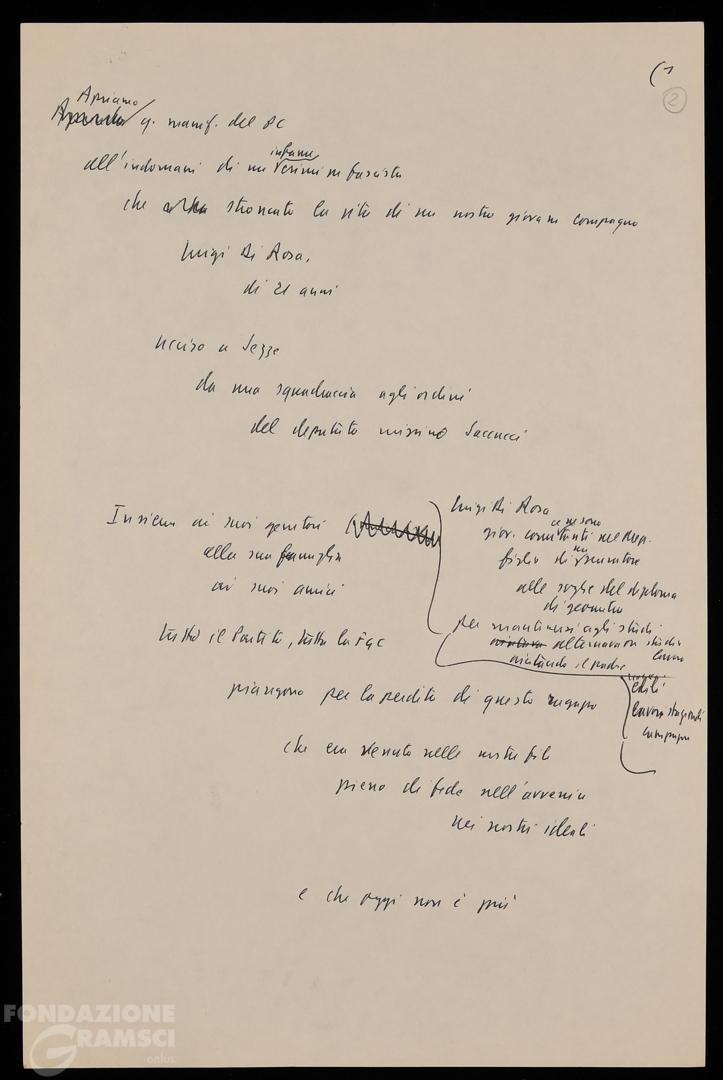 (1
2
Apriamo
q. manif. del PC
infame
all'indomani di un crimine fascista
che ha stroncato la vita di un nostro giovane compagno
Luigi Di Rosa,
di 21 anni
ucciso a Sezze
da una squadraccia agli ordini
del deputato missino Saccucci
Insieme ai suoi genitori
alla sua famiglia
ai suoi amici
tutto il Partito, tutta la FGC
Luigi Di Rosa
ce ne sono
giov. com. tanti nel
figlio di un muratore
alle soglie del diploma
di geometra
per mantenersi agli studi
alternava studio
lavoro
aiutando il padre
edili
lavori stagionali
campagna
piangono per la perdita di questo ragazzo
che era venuto nelle nostre file
pieno di fede nell'avvenire
nei nostri ideali
e che oggi non è più
FONDAZIONE
GRAMSCI
onlus